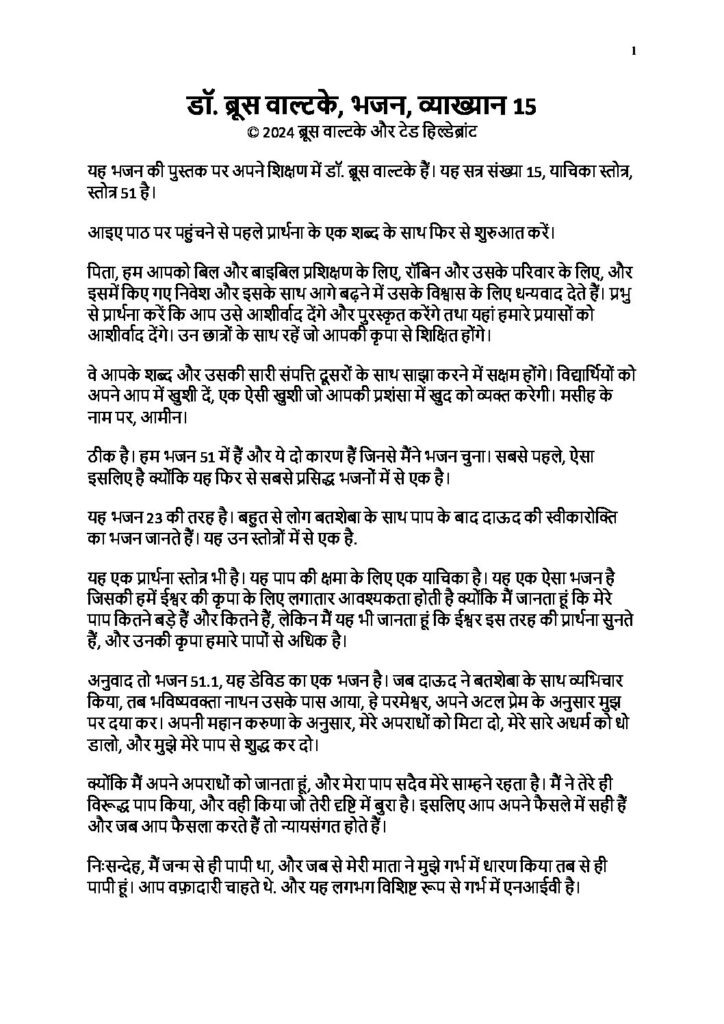 1
डॉ. ब्रूस वाल्टके, भजन, व्याख्यान 15
© 2024 ब्रूस वाल्टके और टेड हिल्डेब्रांट
यह भजन की पुस्तक पर अपने शिक्षण में डॉ. ब्रूस वाल्टके हैं। यह सत्र संख्या 15, याचिका स्तोत्र,
स्तोत्र 51 है।
आइए पाठ पर पहुंचने से पहले प्रार्थना के एक शब्द के साथ फिर से शुरुआत करें।
पिता, हम आपको बिल और बाइबिल प्रशिक्षण के लिए, रॉबिन और उसके परिवार के लिए, और
इसमें किए गए निवेश और इसके साथ आगे बढ़ने में उसके विश्वास के लिए धन्यवाद देते हैं। प्रभु
से प्रार्थना करें कि आप उसे आशीर्वाद देंगे और पुरस्कृत करेंगे तथा यहां हमारे प्रयासों को
आशीर्वाद देंगे। उन छात्रों के साथ रहें जो आपकी कृपा से शिक्षित होंगे।
वे आपके शब्द और उसकी सारी संपत्ति दूसरों के साथ साझा करने में सक्षम होंगे। विद्यार्थियों को
अपने आप में खुशी दें, एक ऐसी खुशी जो आपकी प्रशंसा में खुद को व्यक्त करेगी। मसीह के
नाम पर, आमीन।
ठीक है। हम भजन 51 में हैं और ये दो कारण हैं जिनसे मैंने भजन चुना। सबसे पहले, ऐसा
इसलिए है क्योंकि यह फिर से सबसे प्रसिद्ध भजनों में से एक है।
यह भजन 23 की तरह है। बहुत से लोग बतशेबा के साथ पाप के बाद दाऊद की स्वीकारोक्ति
का भजन जानते हैं। यह उन स्तोत्रों में से एक है.
यह एक प्रार्थना स्तोत्र भी है। यह पाप की क्षमा के लिए एक याचिका है। यह एक ऐसा भजन है
जिसकी हमें ईश्वर की कृपा के लिए लगातार आवश्यकता होती है क्योंकि मैं जानता हूं कि मेरे
पाप कितने बड़े हैं और कितने हैं, लेकिन मैं यह भी जानता हूं कि ईश्वर इस तरह की प्रार्थना सुनते
हैं, और उनकी कृपा हमारे पापों से अधिक है।
अनुवाद तो भजन 51.1, यह डेविड का एक भजन है। जब दाऊद ने बतशेबा के साथ व्यभिचार
किया, तब भविष्यवक्ता नाथन उसके पास आया, हे परमेश्वर, अपने अटल प्रेम के अनुसार मुझ
पर दया कर। अपनी महान करुणा के अनुसार, मेरे अपराधों को मिटा दो, मेरे सारे अधर्म को धो
डालो, और मुझे मेरे पाप से शुद्ध कर दो।
क्योंकि मैं अपने अपराधों को जानता हूं, और मेरा पाप सदैव मेरे साम्हने रहता है। मैं ने तेरे ही
विरूद्ध पाप किया, और वही किया जो तेरी दृष्टि में बुरा है। इसलिए आप अपने फैसले में सही हैं
और जब आप फैसला करते हैं तो न्यायसंगत होते हैं।
निःसन्देह, मैं जन्म से ही पापी था, और जब से मेरी माता ने मुझे गर्भ में धारण किया तब से ही
पापी हूं। आप वफ़ादारी चाहते थे. और यह लगभग विशिष्ट रूप से गर्भ में एनआईवी है।